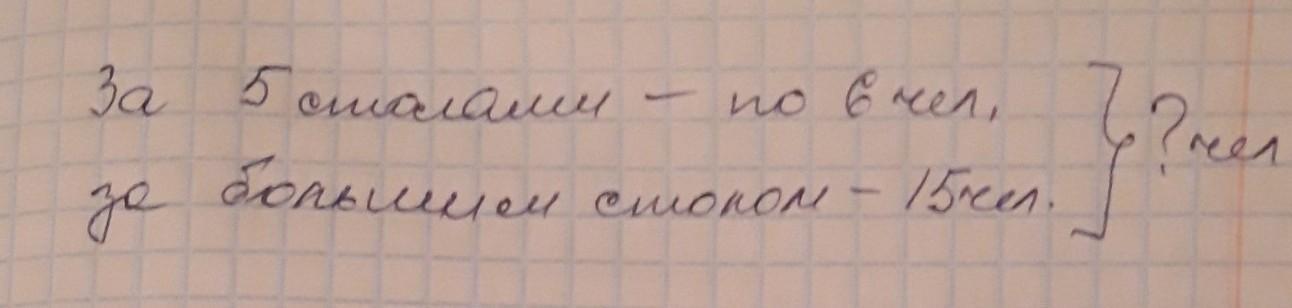 За 5 столами – по 6 чел,
за большим столом – 15 чел. } ? чел